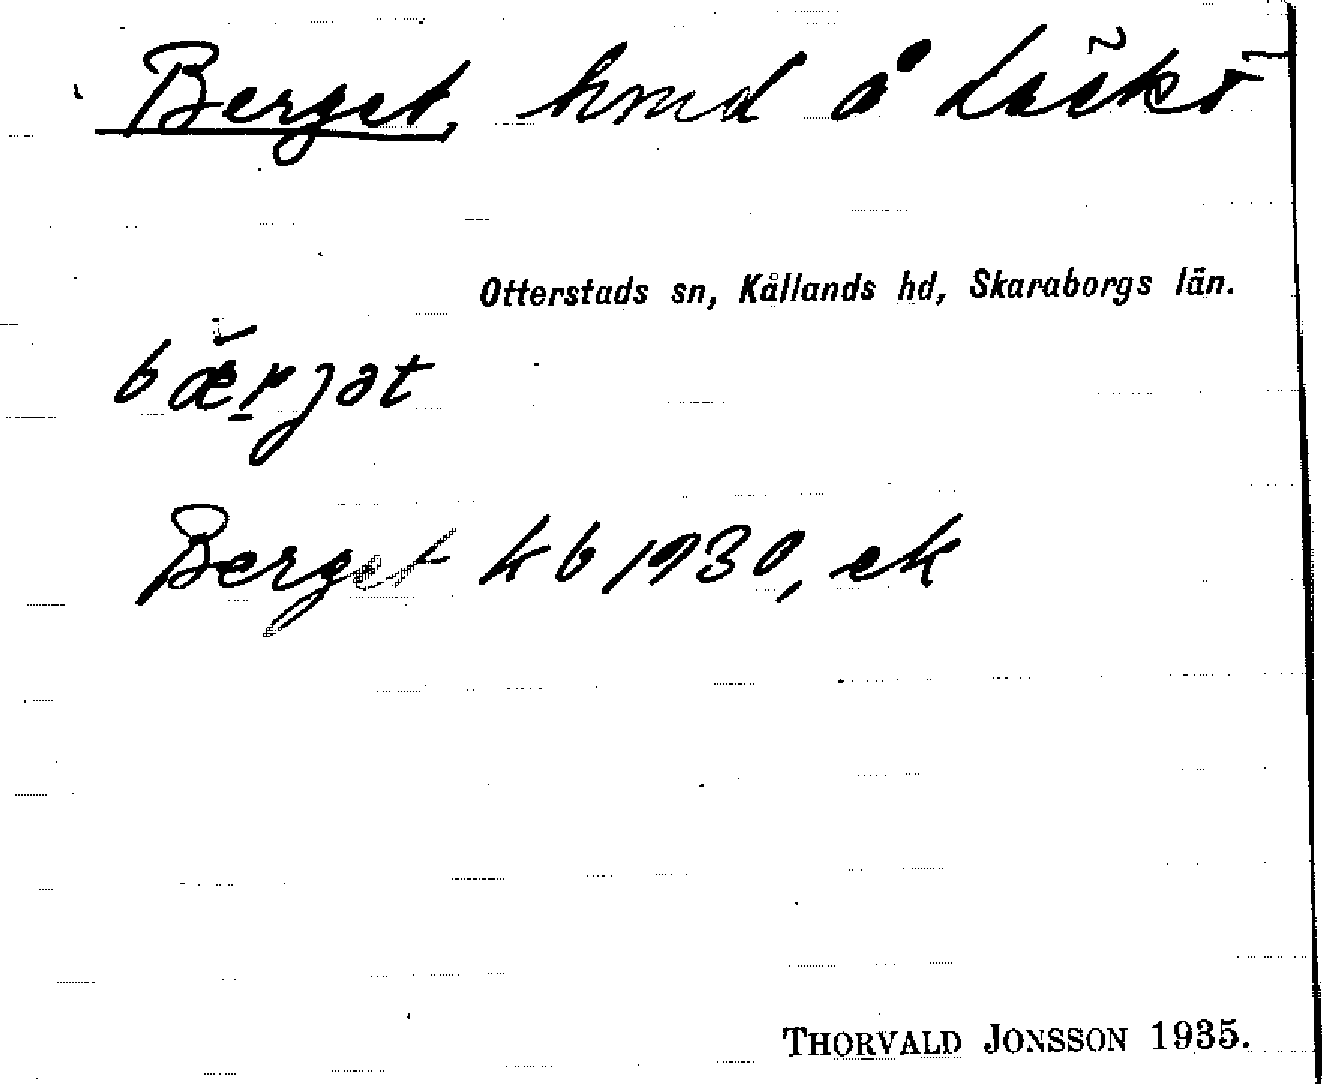 Berget, hmd å Läckö
Otterstads sn, Kållands hd, Skaraborgs län.
bærjət
Berget kb 1930, ek
THORVALD JONSSON 1935.